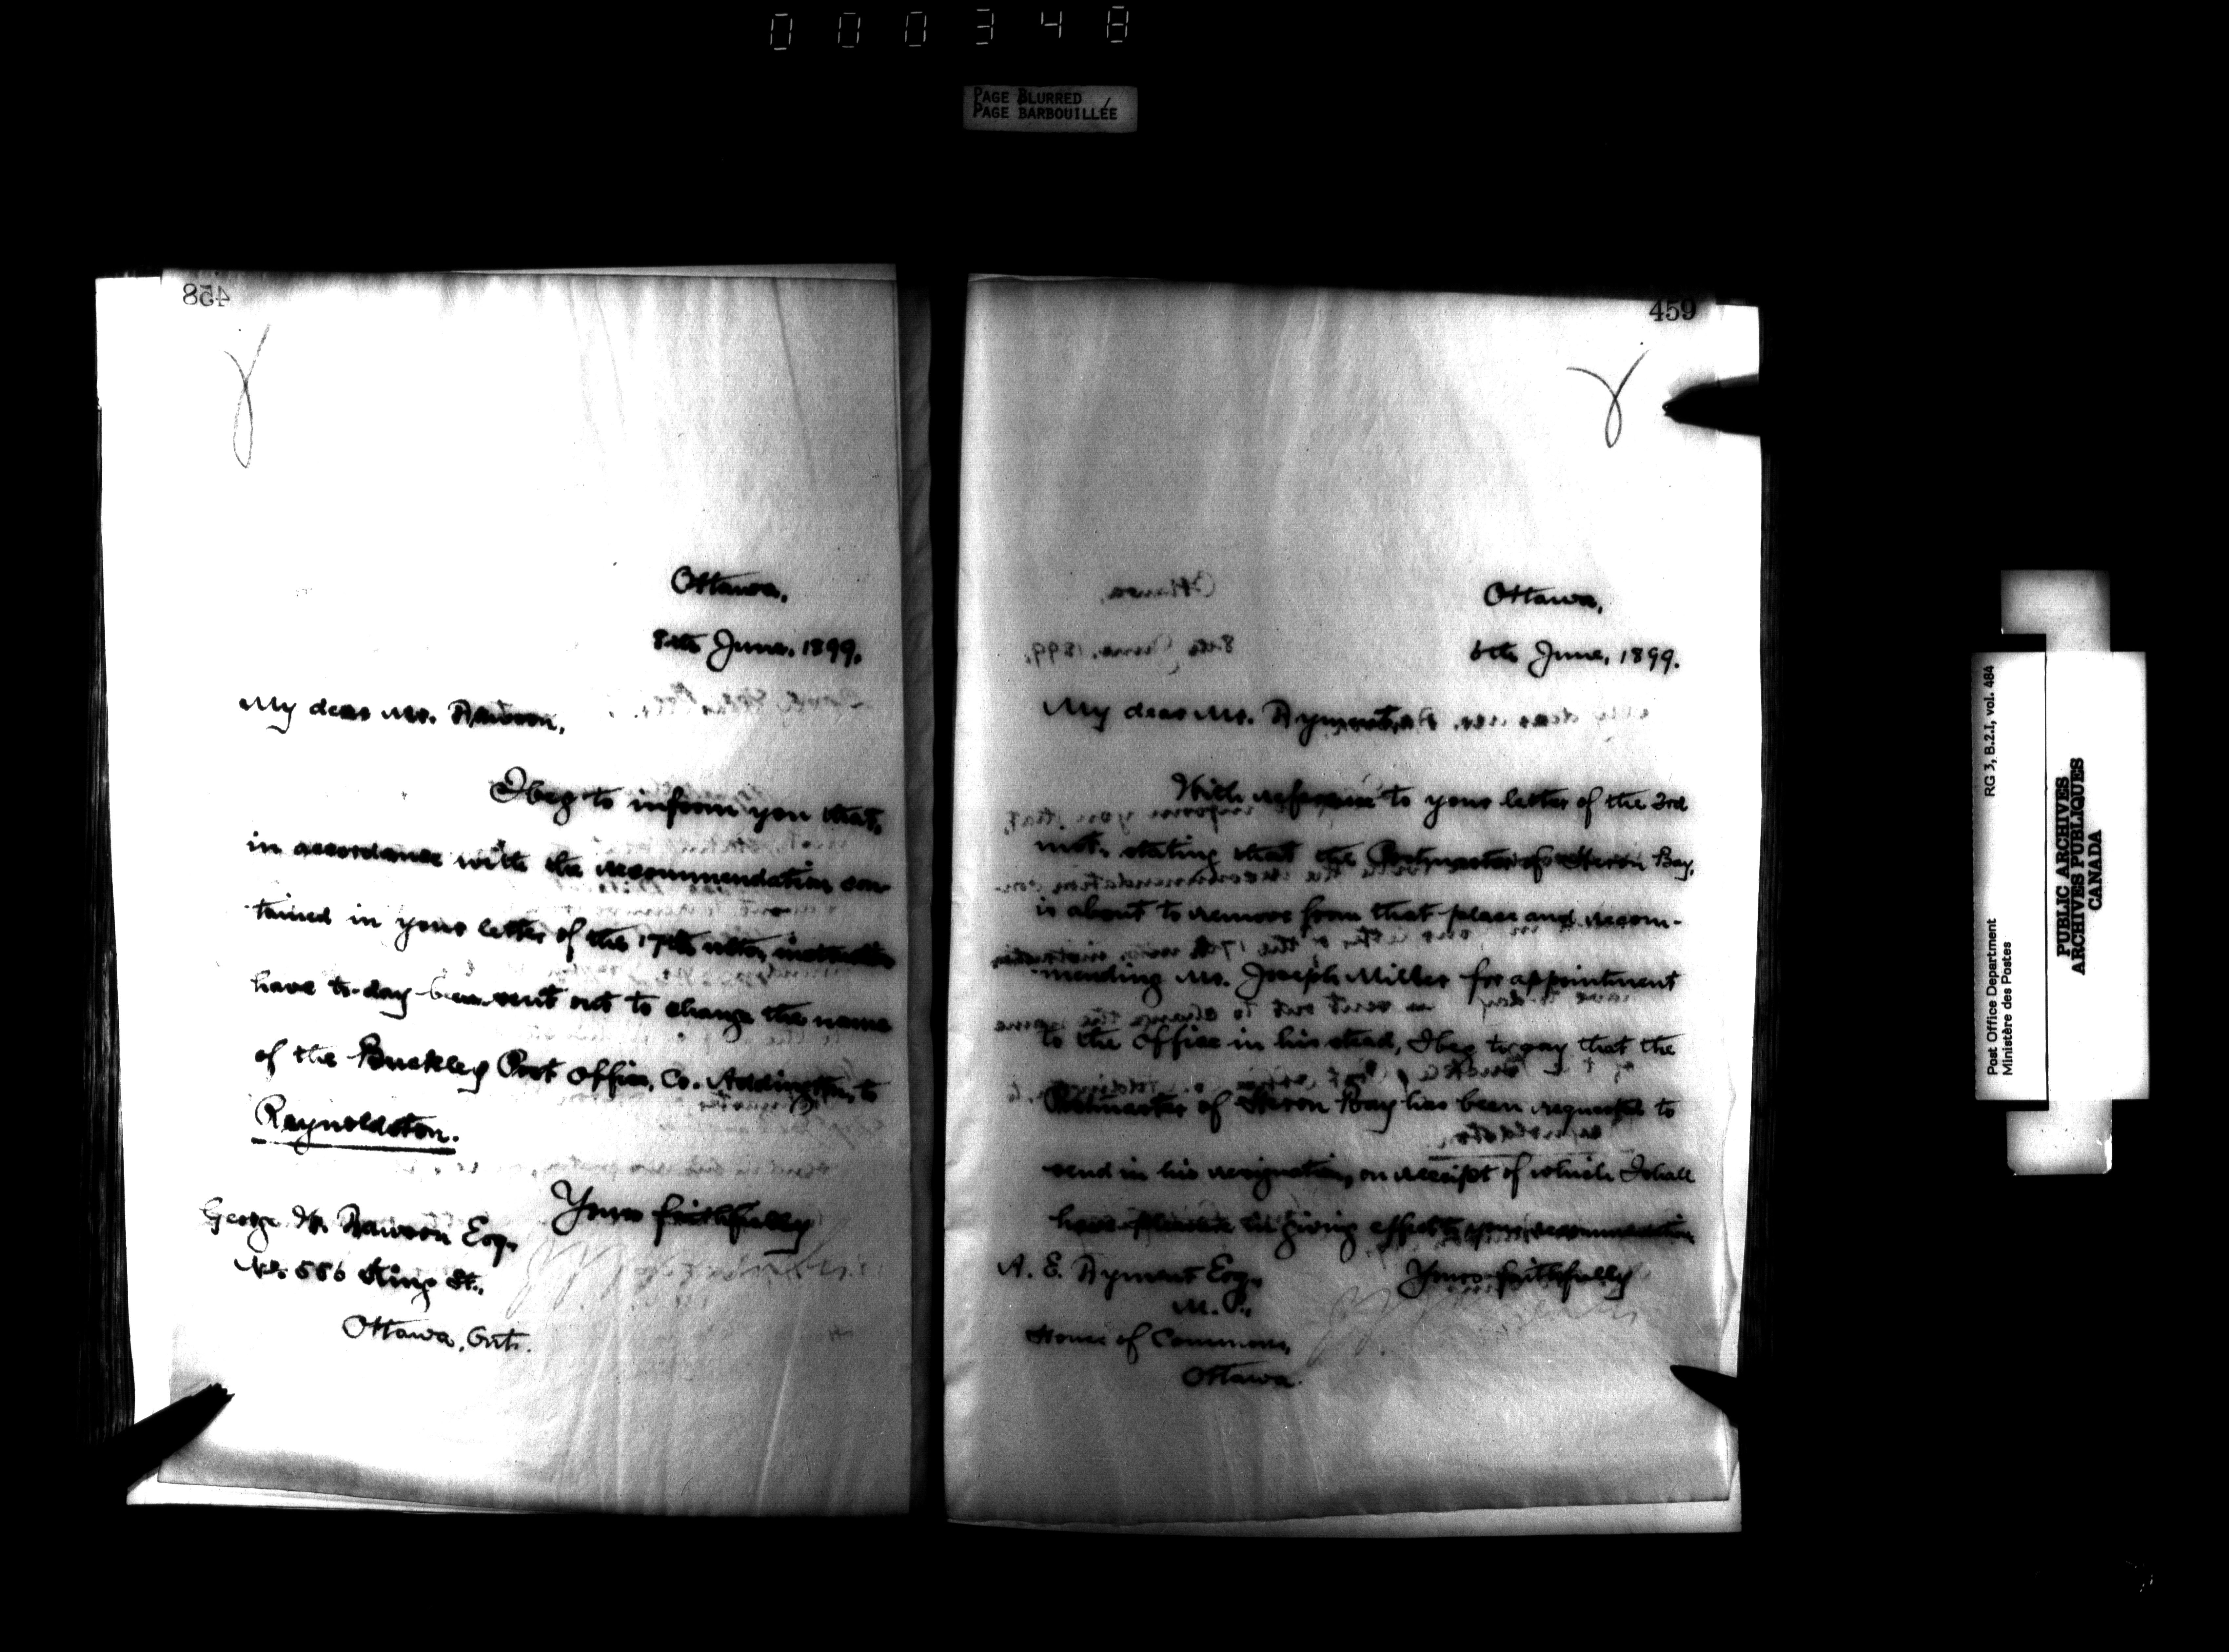 000348
PAGE BLURRED
PAGE BARBOUILLÉE
458
Ottawa,
8th June, 1899.
My dear Mr. Dawson,
I beg to inform you that,
in accordance with the recommendation con-
tained in your letter of the 17th ulto, instructions
have to-day been sent out to change the name
of the Buckley Post Office, Co. Addington, to
Reynoldston.
Yours faithfully
George Dawson Esq.,
No. 556 King St.,
Ottawa, Ont.
459
Ottawa,
6th June, 1899.
My dear Mr. Dyment,
With reference to your letter of the 3rd
inst. stating that the Postmaster of Heron Bay,
is about to remove from that place and recom-
mending Mr. Joseph Miller for appointment
to the Office in his stead, I beg to say that the
Postmaster of Heron Bay has been requested to
send in his resignation, on receipt of which I shall
have pleasure in giving effect to your recommendation
Yours faithfully
A. E. Dyment Esq.,
M.P.,
House of Commons,
Ottawa.
Post Office Department
Ministère des Postes
RG 3, B.2.I, vol. 484
PUBLIC ARCHIVES
ARCHIVES PUBLIQUES
CANADA